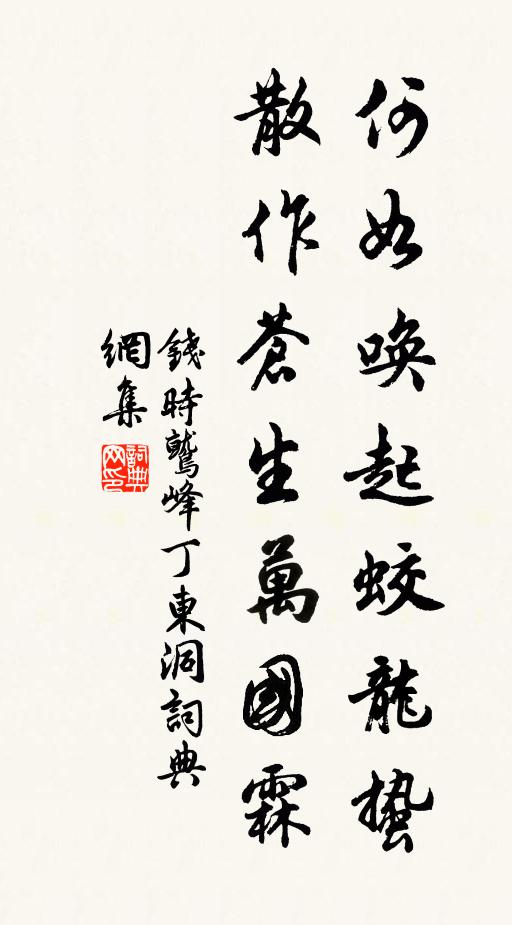 何如喚起蛟龍蟄
散作蒼生萬國霖
錢時鷲峰丁東洞詞典
網集
詞典
网印